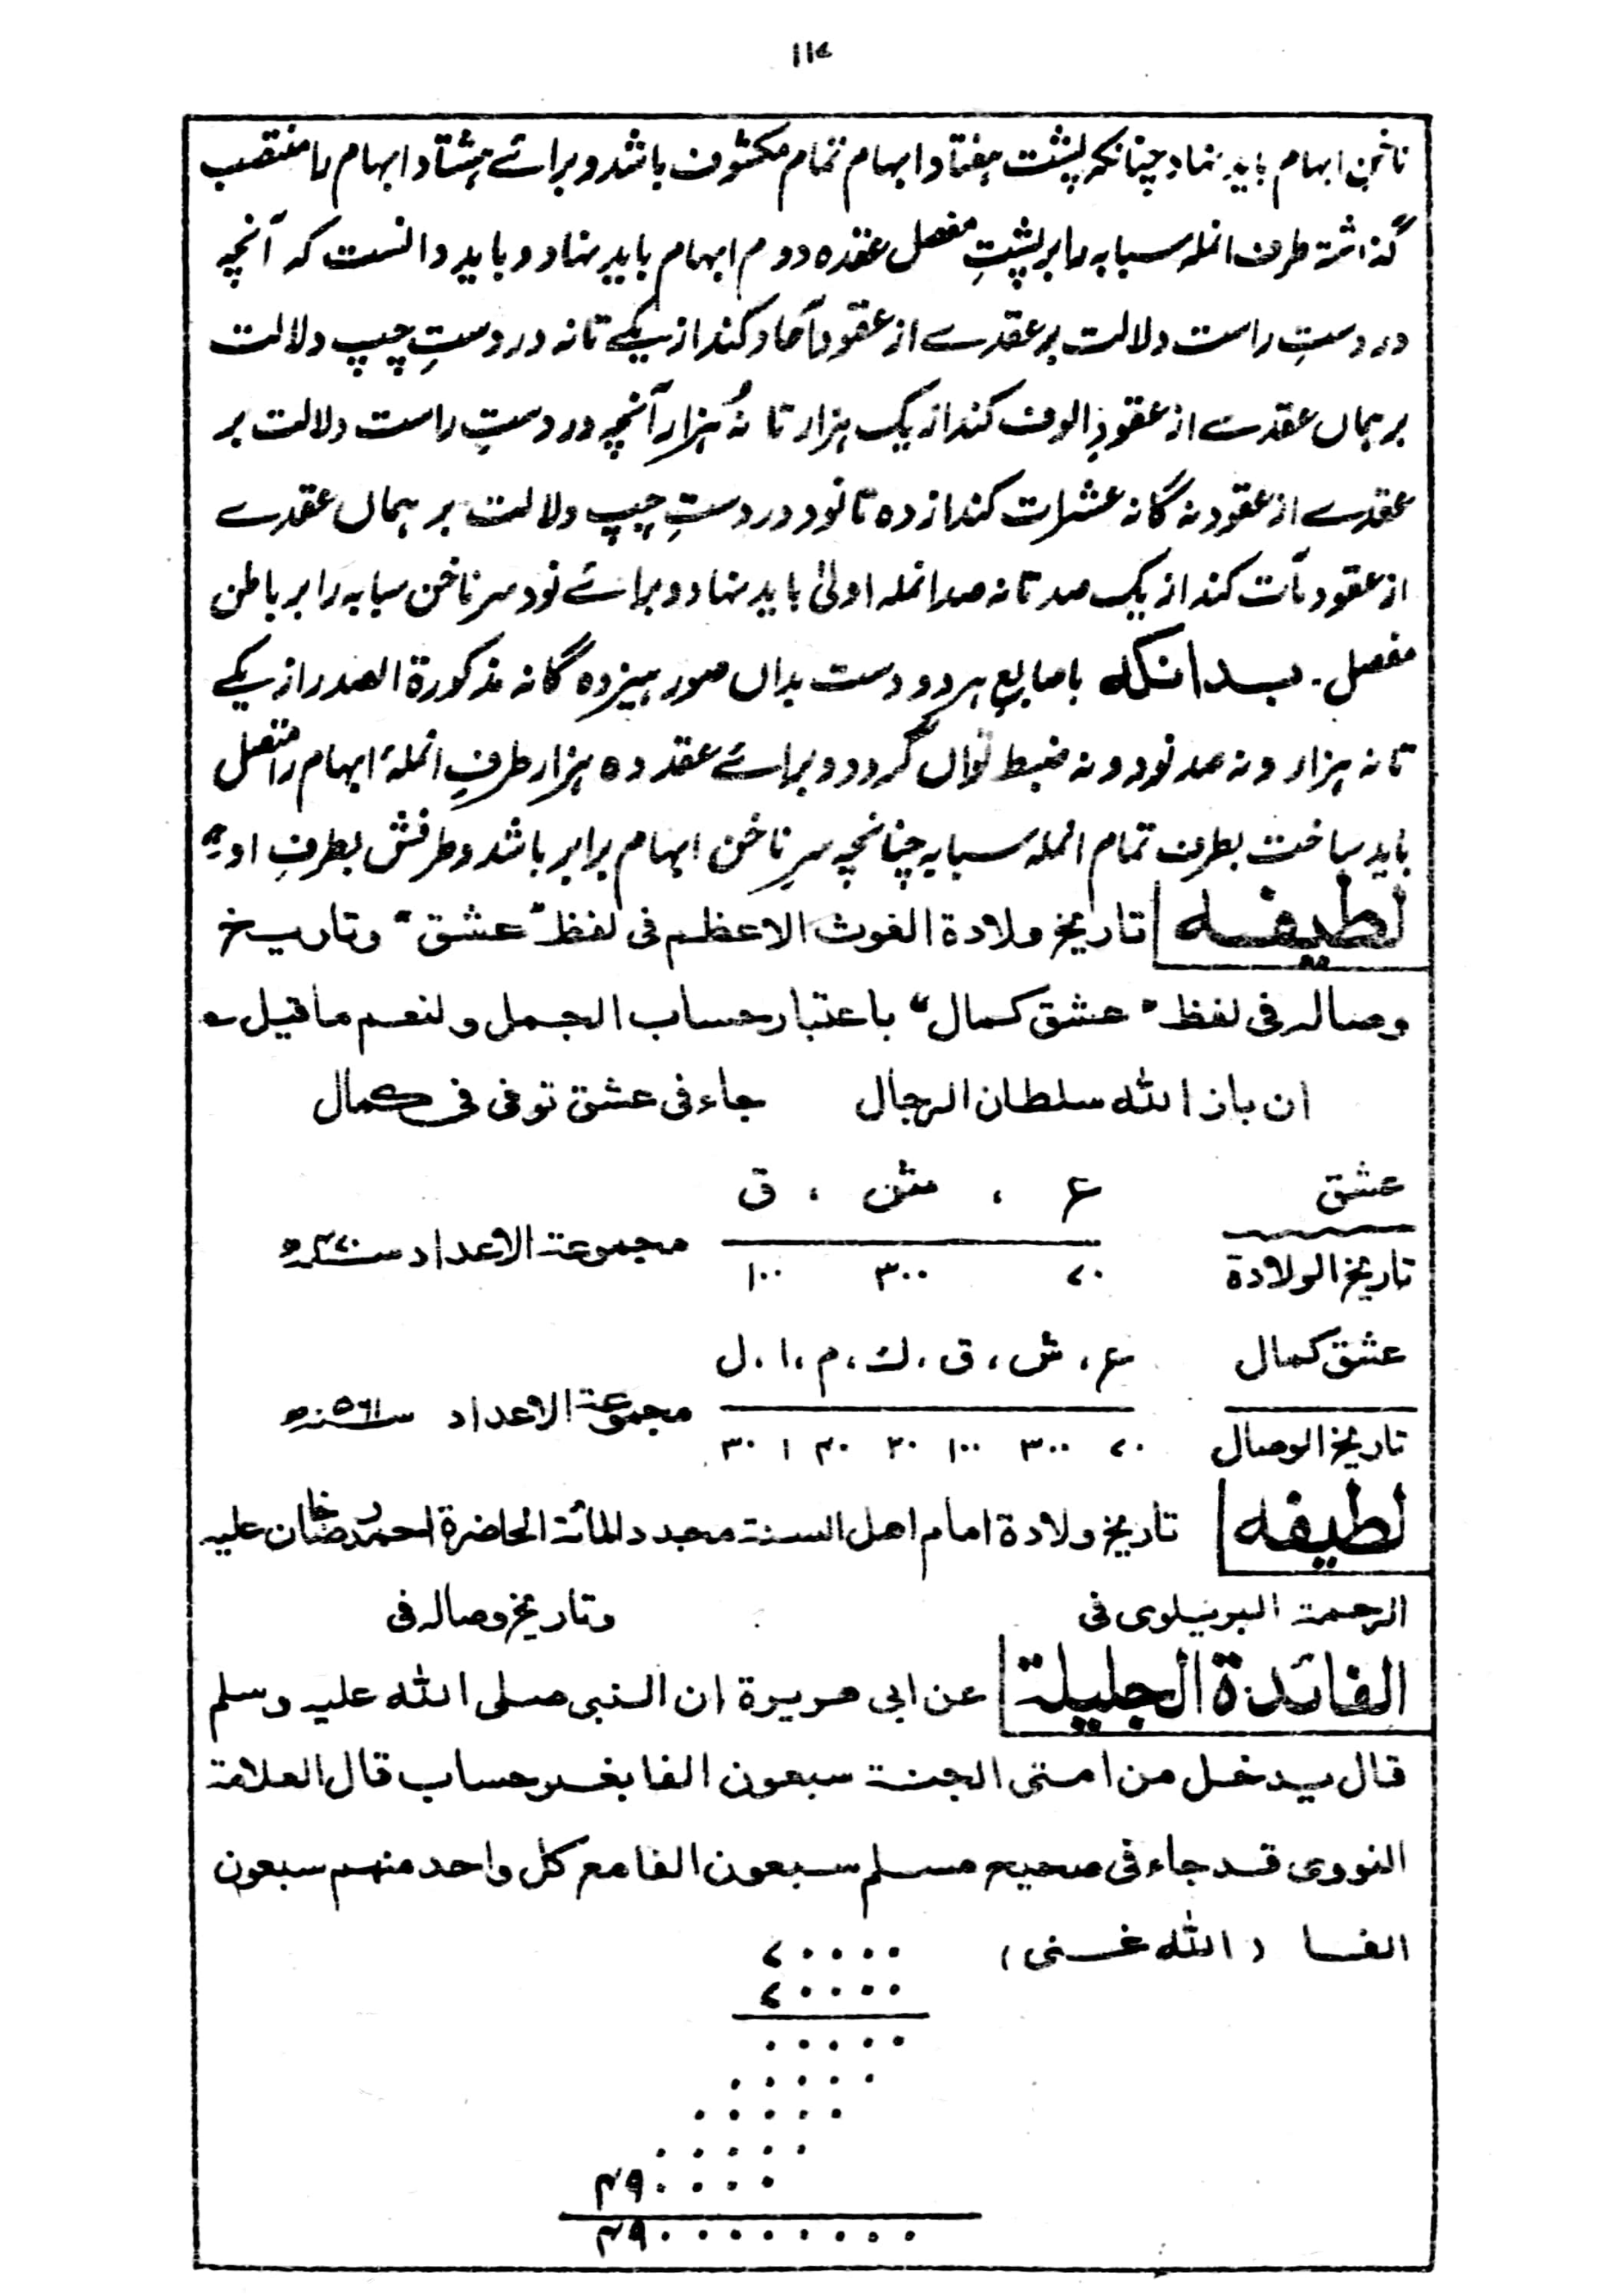 ۱۱۷
ناخن ابہام باید نہاد چنانکہ پشت ہفتاد ابہام تمام مکشوف باشد و برائے ہشتاد ابہام را منتصب
گذاشتہ طرف انملہ سبابہ را بر پشتِ مفصل عقدہ دوم ابہام باید نہاد و باید دانست کہ آنچہ
در دستِ راست دلالت بر عقدے از عقود آحاد کند از یکے تا نہ در دستِ چپ دلالت
بر ہماں عقدے از عقودِ الوف کند از یک ہزار تا نُہ ہزار آنچہ در دستِ راست دلالت بر
عقدے از عقود نہ گانہ عشرات کند از دہ تا نود در دستِ چپ دلالت بر ہماں عقدے
از عقود مآت کند از یک صد تا نہ صد انملہ اولیٰ باید نہاد و برائے نود سر ناخن سبابہ را بر باطن
مفصل ۔ بدانکہ باصابع ہر دو دست بداں صور ہیزدہ گانہ مذکورۃ الصدر از یکے
تا نہ ہزار و نہ صد نود و نہ ضبط تواں کرد و برائے عقد دہ ہزار طرفِ انملۂ ابہام را متصل
باید ساخت بطرف تمام انملہ سبابہ چنانچہ سرِ ناخن ابہام برابر باشد و طرفش بطرفِ او
لطیفہ تاریخ ولادۃ الغوث الاعظم فی لفظ "عشق" وتاریخ
وصالہ فی لفظ "عشق کمال" باعتبار حساب الجمل ولنعم ما قیل ؎
ان باز اللہ سلطان الرجال جاء فی عشق توفی فی کمال
عشق ع ، ش ، ق
تاریخ الولادۃ ۷۰ ۳۰۰ ۱۰۰ مجموعۃ الاعداد سنہ ۴۷۰ھ
عشق کمال ع ، ش ، ق ، ک ، م ، ا ، ل
تاریخ الوصال ۷۰ ۳۰۰ ۱۰۰ ۲۰ ۴۰ ۱ ۳۰ مجموعۃ الاعداد سنہ ۵۶۱ھ
لطیفہ تاریخ ولادۃ امام اہل السنۃ مجدد المائۃ الحاضرۃ احمد رضا خان علیہ
الرحمۃ البریلوی فی وتاریخ وصالہ فی
الفائدۃ الجلیلۃ عن ابی ھریرۃ ان النبی صلی اللہ علیہ وسلم
قال یدخل من امتی الجنۃ سبعون الفا بغیر حساب قال العلامۃ
النووی قد جاء فی صحیح مسلم سبعون الفا مع کل واحد منھم سبعون
الفا (اللہ غنی) ۷۰۰۰۰
۷۰۰۰۰
۰۰۰۰۰
۰۰۰۰۰
۰۰۰۰۰
۰۰۰۰۰
۴۹۰۰۰۰
۴۹۰۰۰۰۰۰۰۰